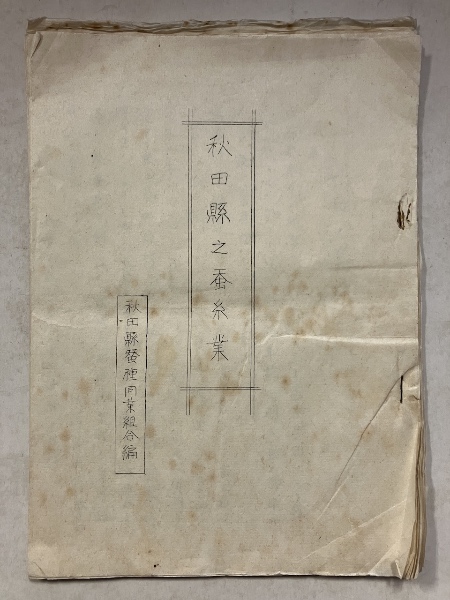 秋田縣之蚕糸業
秋田縣蠶種同業組合編